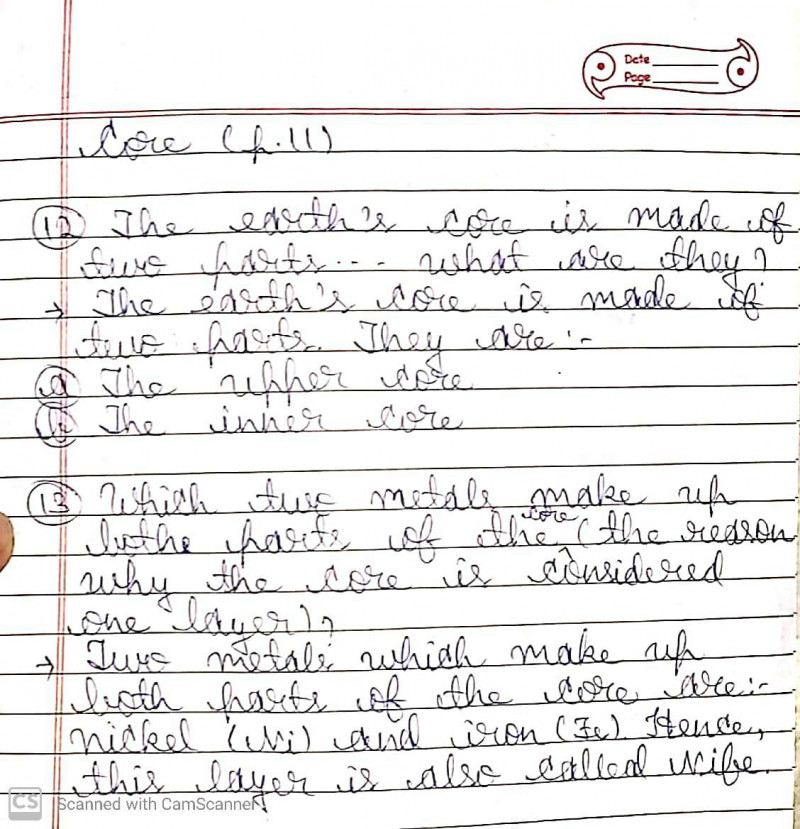 Date
Page
Core (p.11)
12 The earth's core is made of
two parts... what are they?
→ The earth's core is made of
two parts. They are :-
a The upper core
b The inner core
13 Which two metals make up
bothe parts of the core (the reason
why the core is considered
one layer)?
→ Two metals which make up
both parts of the core are:-
nickel (Ni) and iron (Fe) Hence,
this layer is also called Nife.
CS Scanned with CamScanner